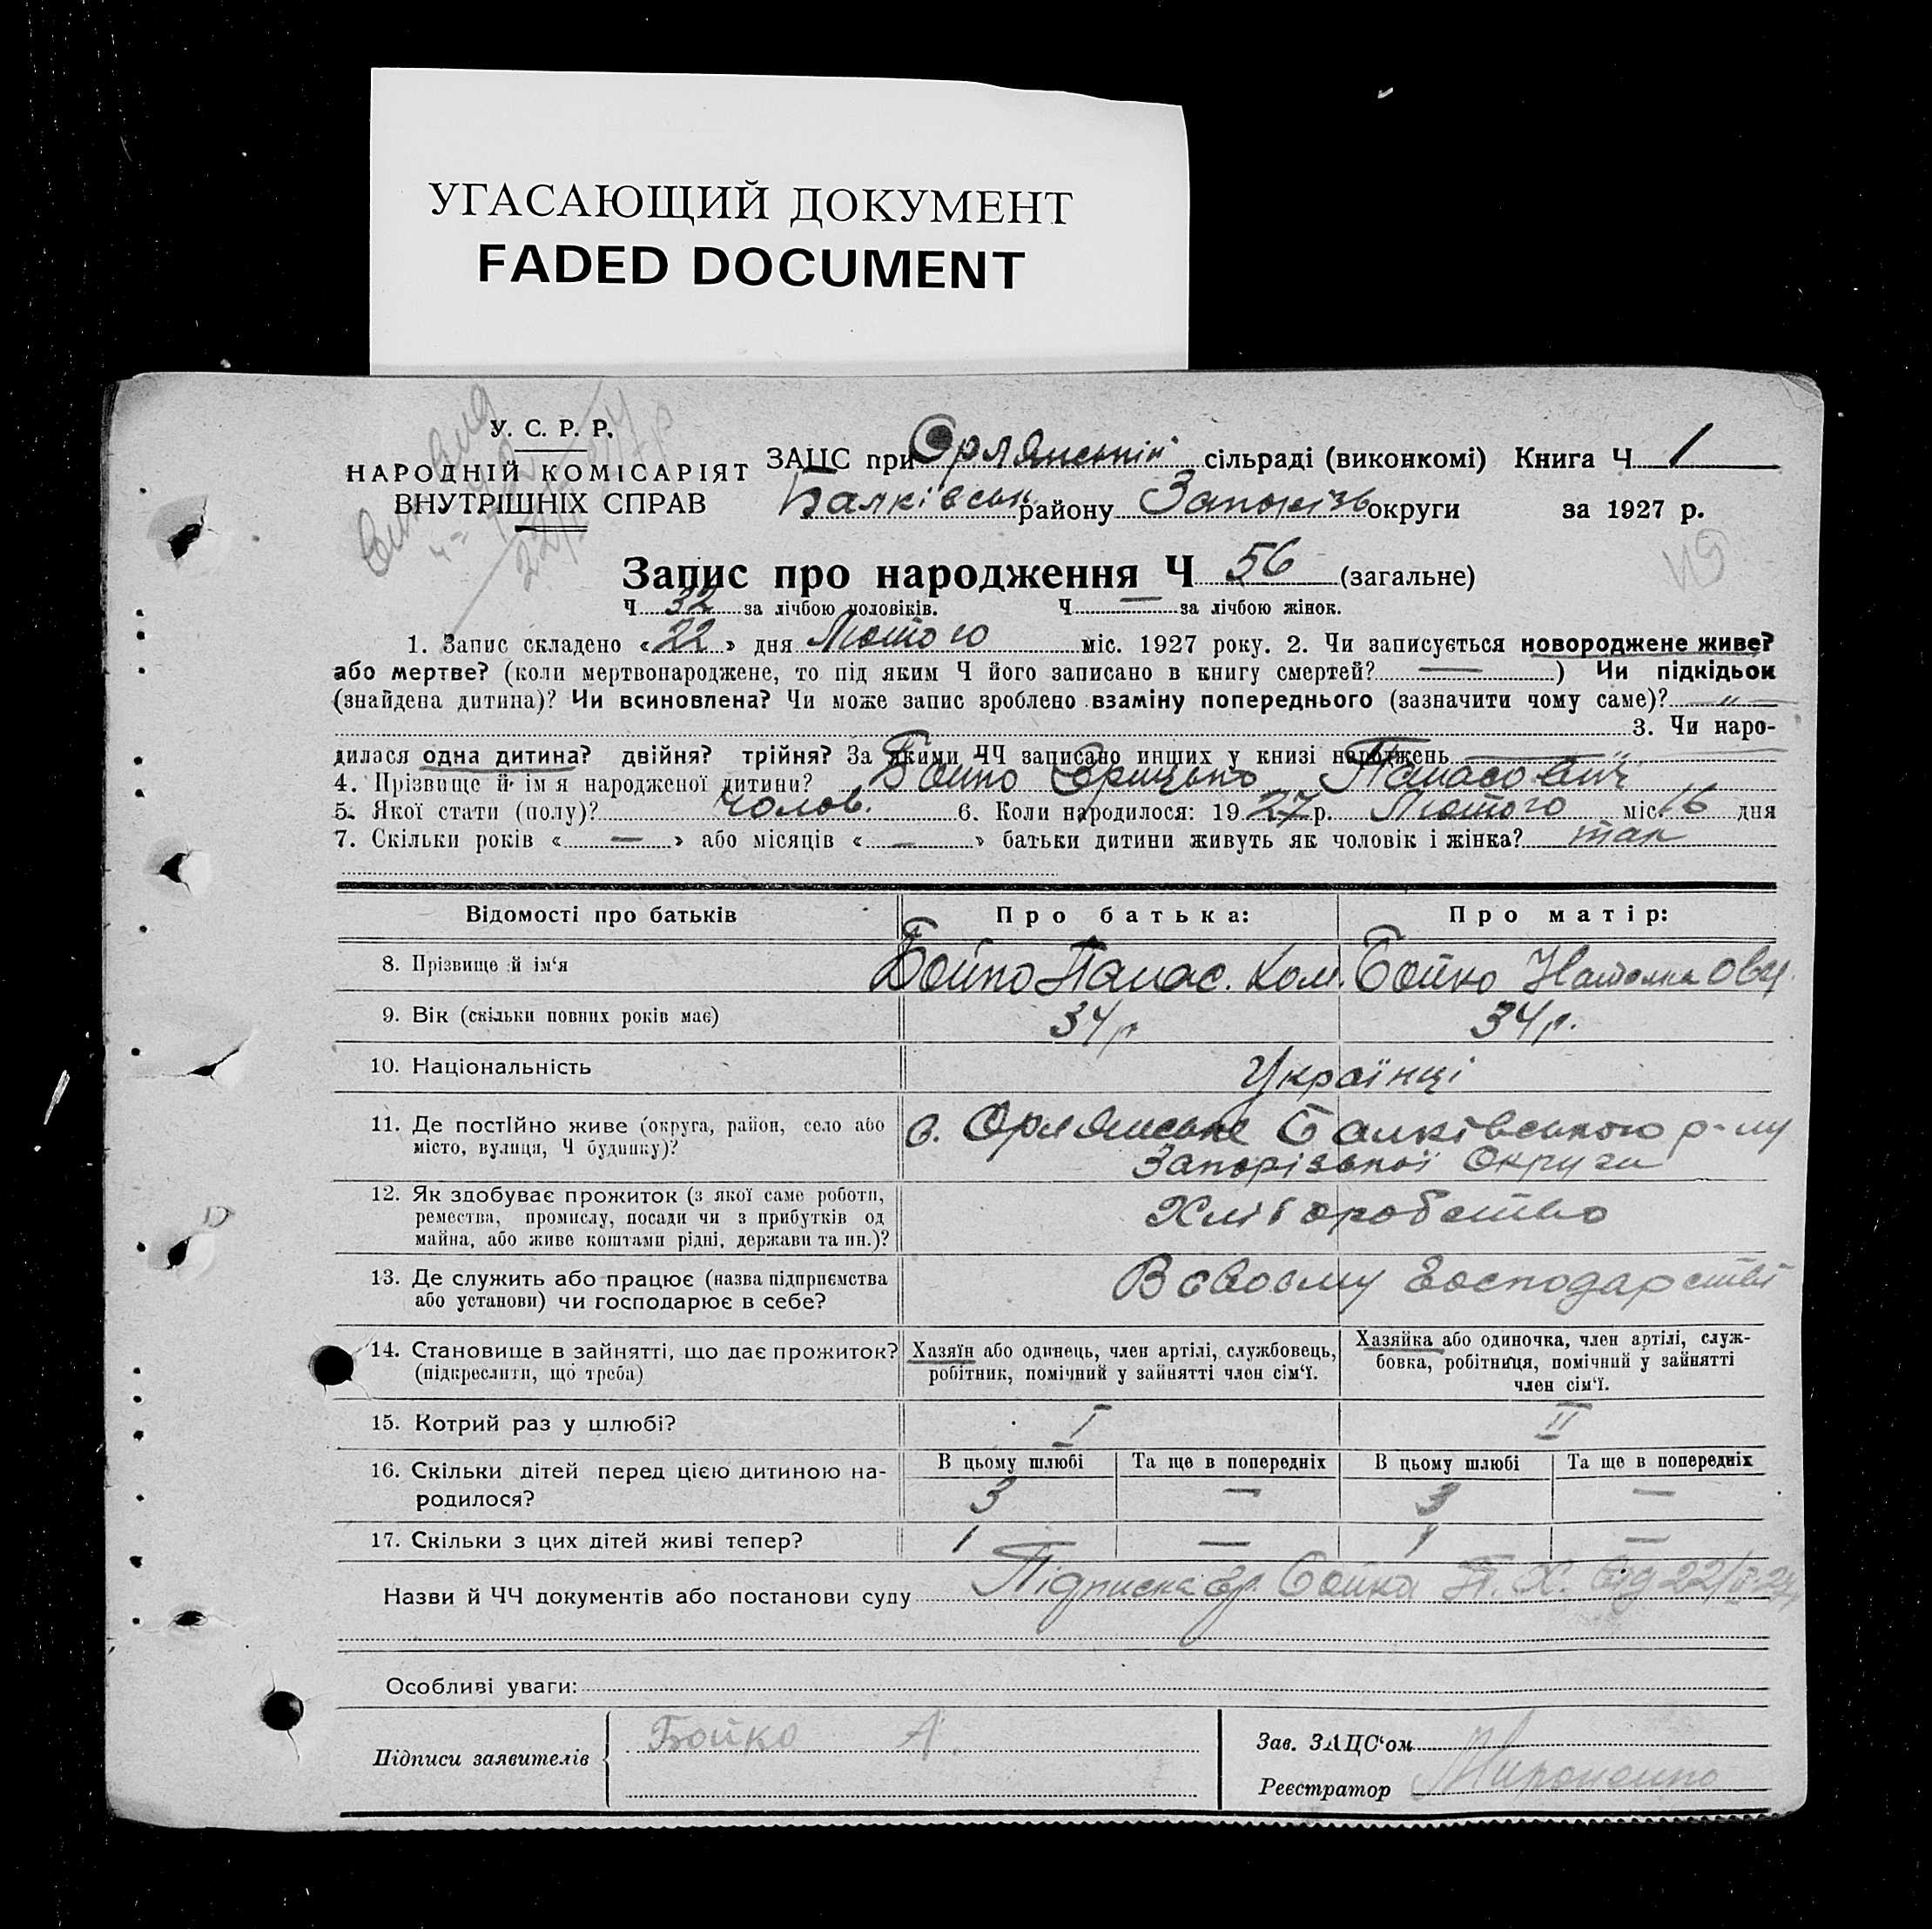 УГАСАЮЩИЙ ДОКУМЕНТ
FADED DOCUMENT
У. С. Р. Р.
НАРОДНІЙ КОМІСАРІЯТ
ВНУТРІШНІХ СПРАВ
ЗАЦС при Орлянській сільраді (виконкомі) Книга Ч 1
Балківськ. району Запорізь округи за 1927 р.
Запис про народження Ч 56 (загальне)
Ч 32 за лічбою чоловіків. Ч — за лічбою жінок.
1. Запис складено «22» дня Лютого міс. 1927 року. 2. Чи записується новороджене живе?
або мертве? (коли мертвонароджене, то під яким Ч його записано в книгу смертей? — ) Чи підкідьок
(знайдена дитина)? Чи всиновлена? Чи може запис зроблено взаміну попереднього (зазначити чому саме)? — „ —
3. Чи наро-
дилася одна дитина? двійня? трійня? За якими ЧЧ записано инших у книзі народжень — „ —
4. Прізвище й ім'я народженої дитини? Бойко Грицько Панасович
5. Якої стати (полу)? чолов. 6. Коли народилося: 1927 р. Лютого міс. 16 дня
7. Скільки років « — » або місяців « — » батьки дитини живуть як чоловік і жінка? так
Відомості про батьків Про батька: Про матір:
8. Прізвище й ім'я Бойко Панас. Бойко
9. Вік (скільки повних років має) 34 р 34 р.
10. Національність Українці
11. Де постійно живе (округа, район, село або
місто, вулиця, Ч будинку)? с. Орлянське Балківського р-ну
Запорізької Округи
12. Як здобуває прожиток (з якої саме роботи,
ремества, промислу, посади чи з прибутків од
майна, або живе коштами рідні, держави та ин.)? Хліборобство
13. Де служить або працює (назва підприємства
або установи) чи господарює в себе? В своєму господарстві
14. Становище в зайнятті, що дає прожиток?
(підкреслити, що треба)
Хазяїн або одинець, член артілі, службовець,
робітник, помічний у зайнятті член сім'ї.
Хазяйка або одиночка, член артілі, служ-
бовка, робітниця, помічний у зайнятті
член сім'ї.
15. Котрий раз у шлюбі? I II
16. Скільки дітей перед цією дитиною на-
родилося?
В цьому шлюбі Та ще в попередніх В цьому шлюбі Та ще в попередніх
3 — 3 —
17. Скільки з цих дітей живі тепер? 1 — 1 —
Назви й ЧЧ документів або постанови суду Підписка гр. Бойка П. Х. від 22/II-27
Особливі уваги:
Підписи заявителів Бойко А.
Зав. ЗАЦС'ом
Реєстратор